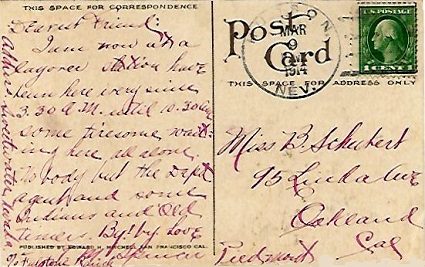 THIS SPACE FOR CORRESPONDENCE
Dearest Friend:
I am now at a
layover station have
been here very since
3.30 A.M. until 10.30 Am
some tiresome wait-
ing here all alone,
Nobody but the Depot
agent and some
Indians and Old
timers. By! by Love
Spencer
Address Sweetwater Nevada
Ranch
PUBLISHED BY EDWARD H. MITCHELL, SAN FRANCISCO CAL.
Post
Card
THIS SPACE FOR ADDRESS ONLY
MAR
9
1914
NEV.
U.S. POSTAGE
1 CENT 1
Miss B. Schukert
95 Linda Ave
Oakland
Piedmont Cal